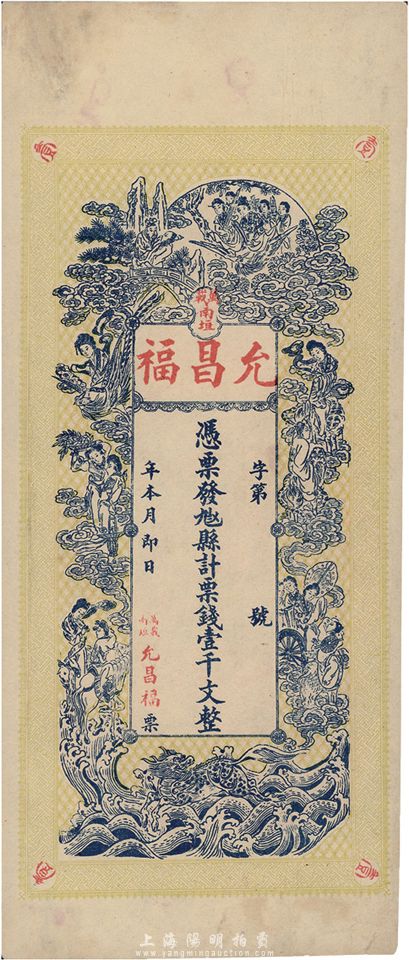 壹 壹
萬戩
南垣
允昌福
字第 號
憑票發兌縣計票錢壹千文整
年本月即日
萬戩
南垣
允昌福票
壹 壹
上海陽明拍賣
www.yangmingauction.com